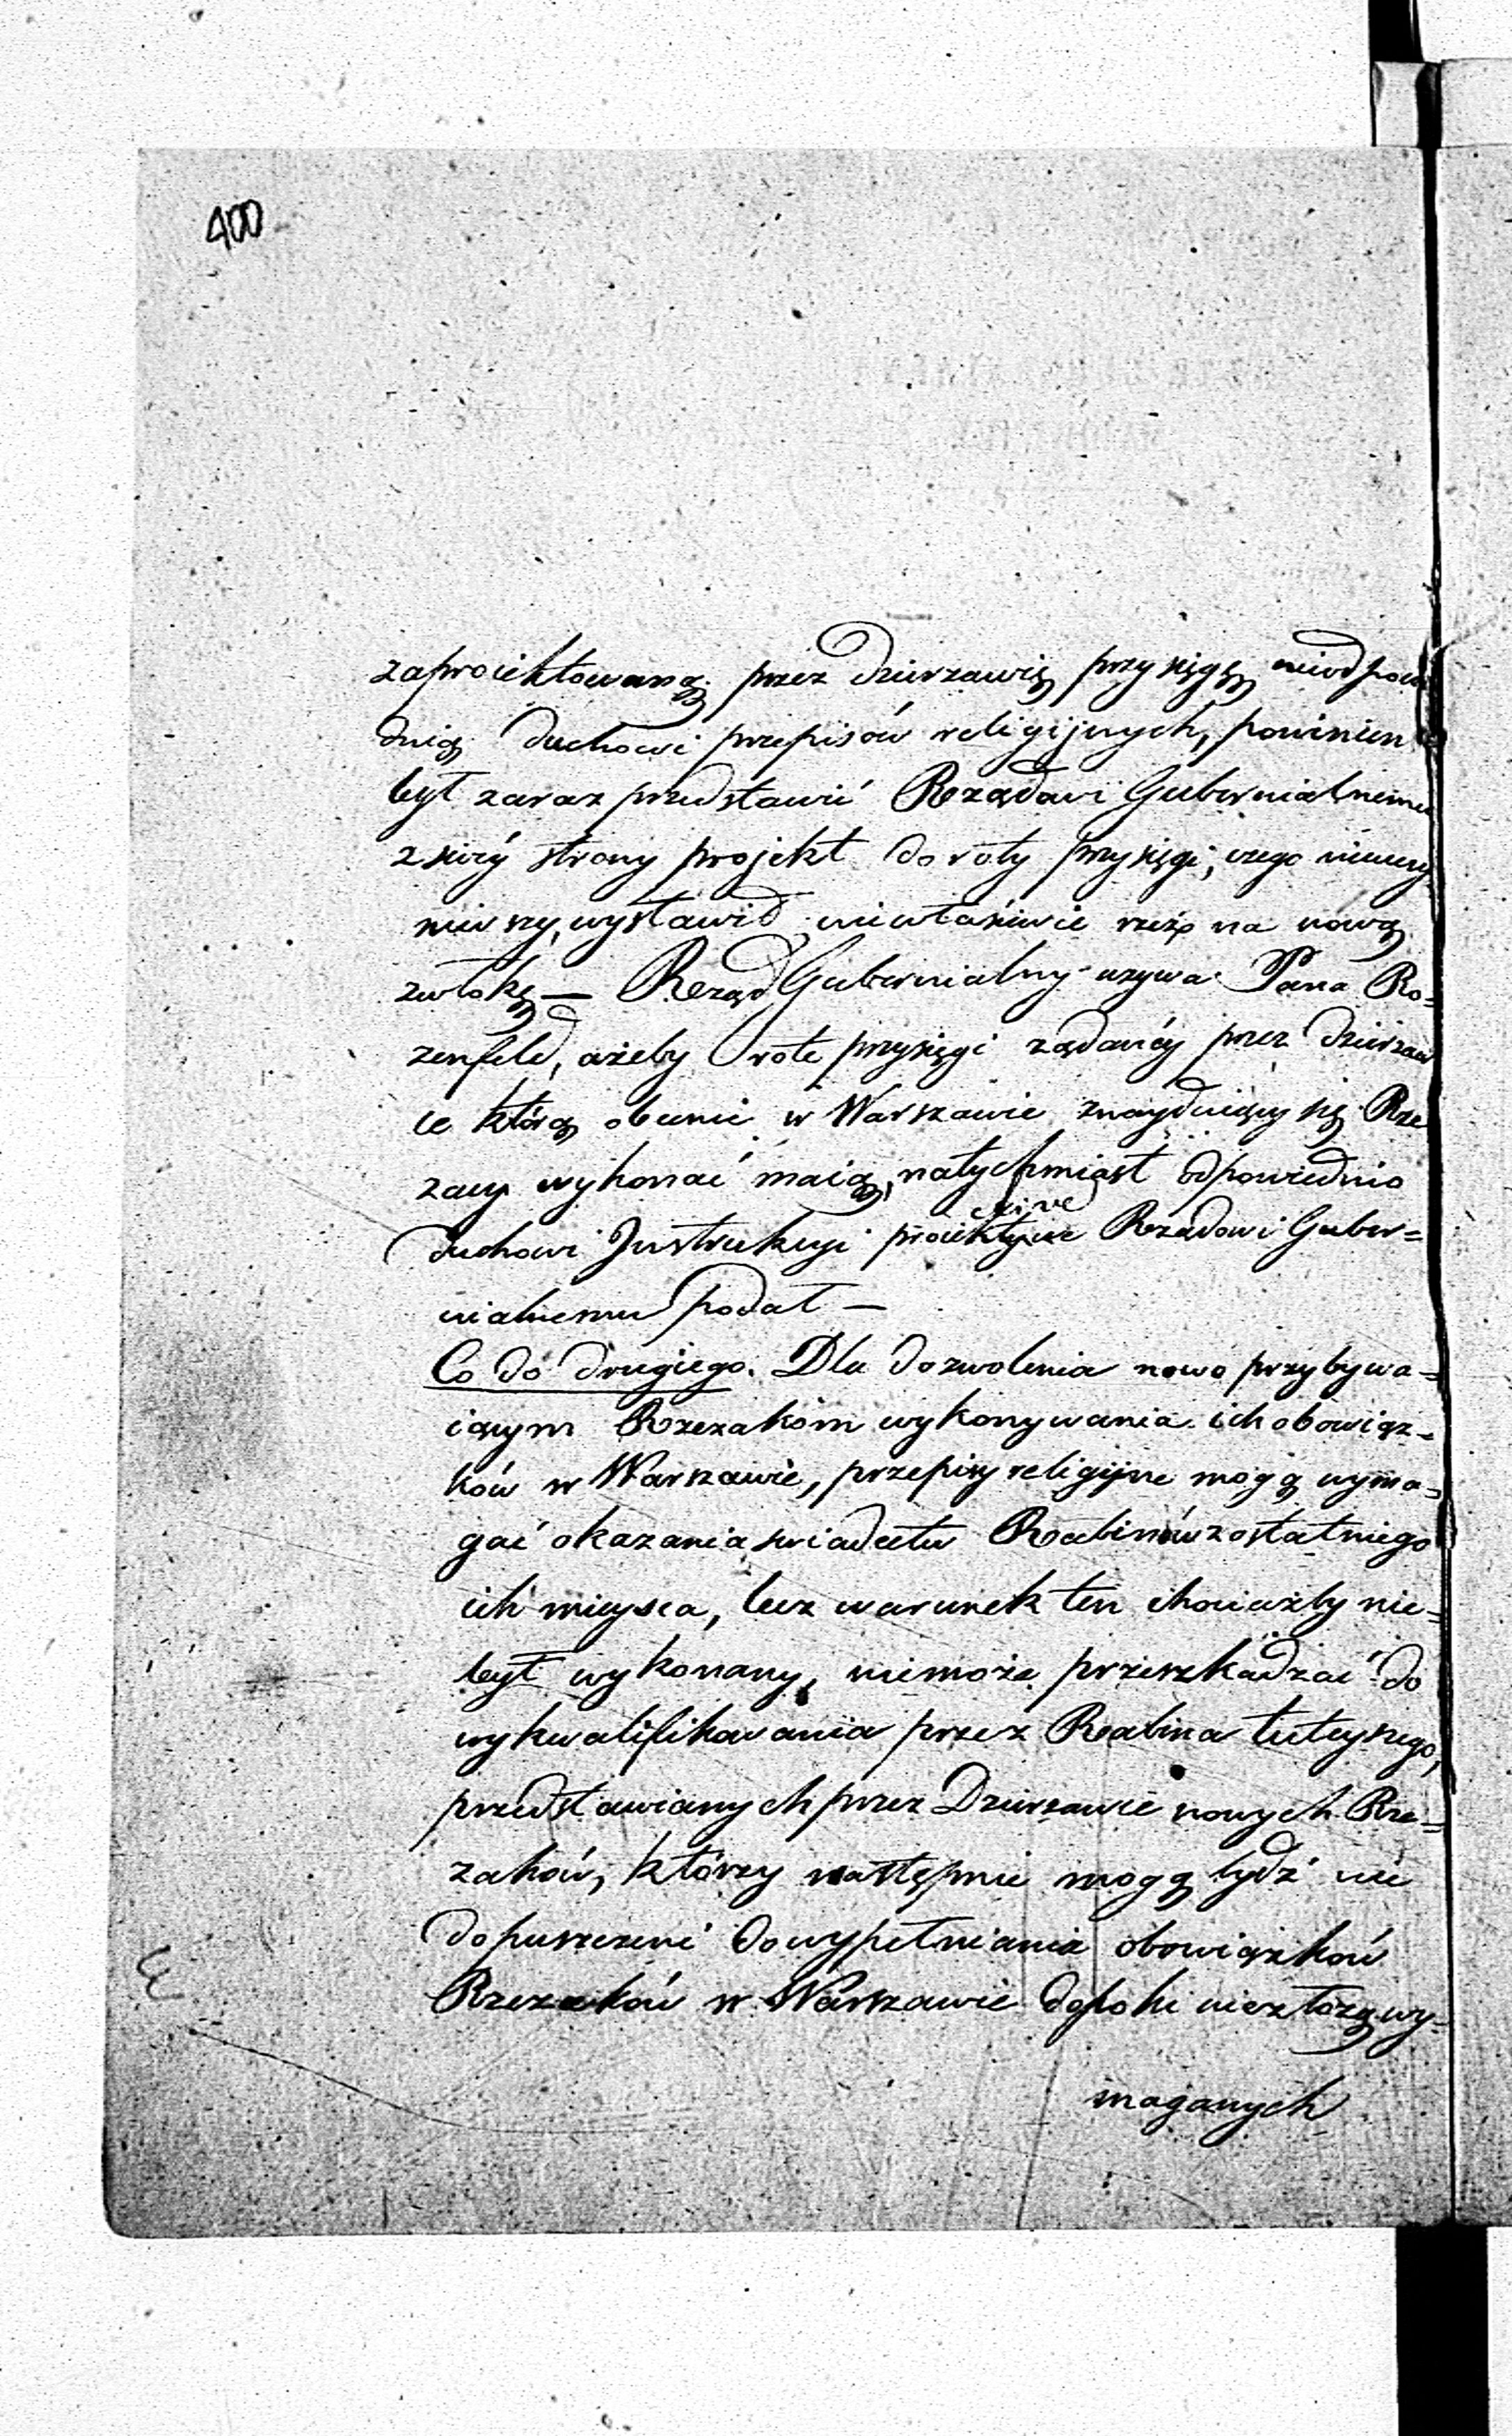 400
zaproiektowaną przez Dzierzawię przysięgę nieodpowie
dnią duchowi przepisów religijnych, powinien
był zaraz przedstawić Rządowi Gubernialnemu
z swéy strony projekt do roty przysięgi, czego nieuczy
niwszy, wystawił niewłaściwie rzecz na nową
zwłokę — Rząd Gubernialny uzywa Pana Ro-
zenfeld, ażeby rotę przysięgi żądanéy przez Dzierzaw
ce którą obecnie w Warszawie znayduiący się Rze
zacy wykonać maią, natychmiast odpowiednio
duchowi Instrukcyi Rządowi Guber=
nialnemu podał —
Co do drugiego. Dla dozwolenia nowo przybywa=
iącym Rzezakóm wykonywania ich obowiąz=
ków w Warszawie, przepisy religijne mogą wyma=
gać okazania świadectw Rabinów z ostatniego
ich mieysca, lecz warunek ten chociażby nie=
był wykonany, niemoże przeszkadzać do
wykwalifikowania przez Rabina tuteyszego,
przedstawianych przez Dzierzawcę nowych Rze=
zaków, którzy następnie mogą bydź nie
dopuszczeni do wypełniania obowiązków
Rzezaków w Warszawie dopóki niezłożą wy=
maganych